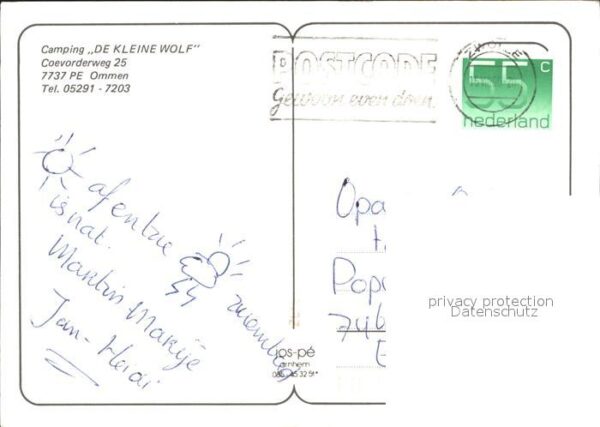 Camping „DE KLEINE WOLF"
Coevorderweg 25
7737 PE Ommen
Tel. 05291 - 7203
POSTCODE
Gewoon even doen.
ZWOLLE
55 c
nederland
af en toe
is nat.
zwembad
Martin Marije
Jan - Heidi
Opa
Pop
746
privacy protection
Datenschutz
jos-pé
arnhem